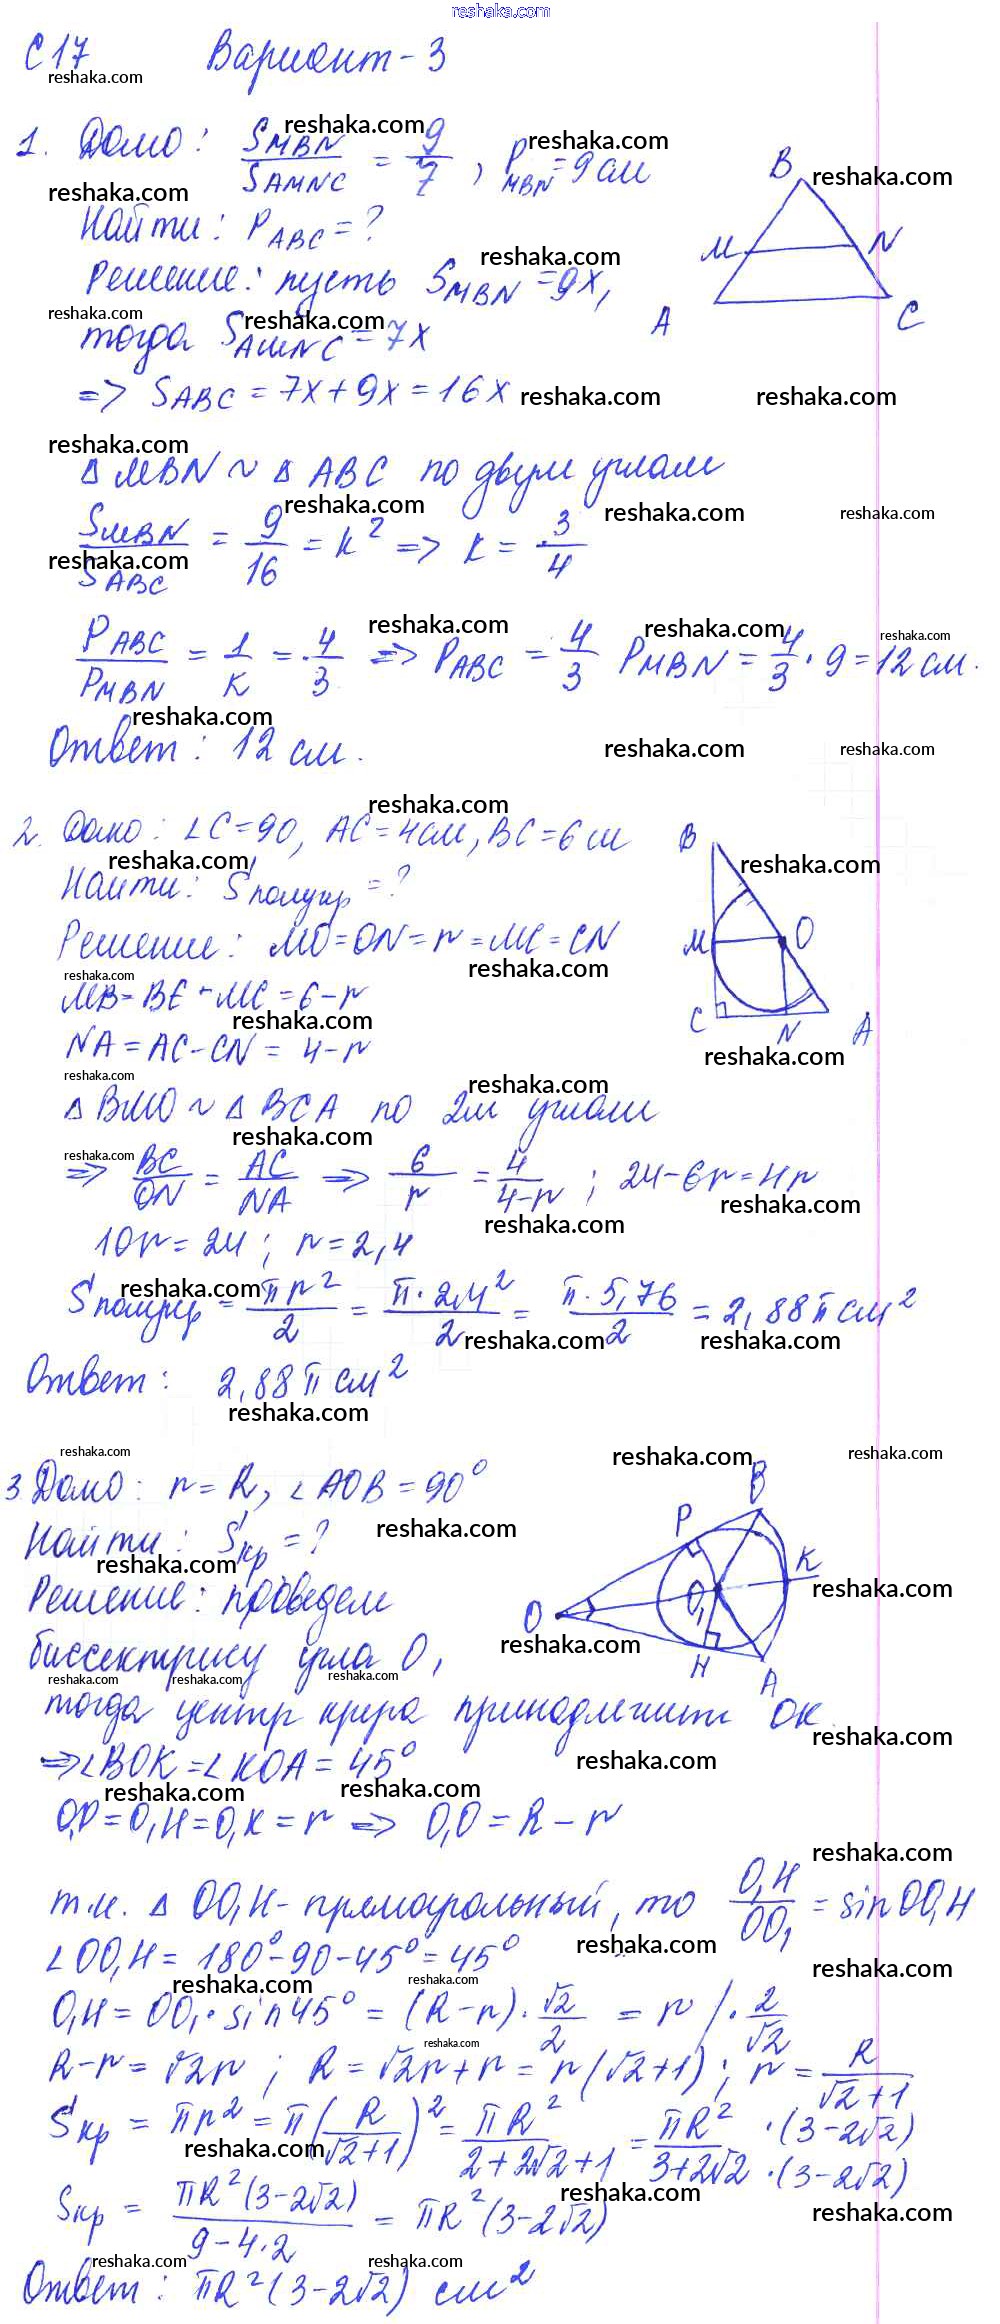 reshaka.com
С 17 Вариант - 3
1. Дано: S_MBN / S_AMNC = 9/7, P_MBN = 9 см
Найти: P_ABC = ?
Решение: пусть S_MBN = 9x,
тогда S_AMNC = 7x
=> S_ABC = 7x + 9x = 16x
Δ MBN ~ Δ ABC по двум углам
S_MBN / S_ABC = 9/16 = k² => k = 3/4
P_ABC / P_MBN = 1/k = 4/3 => P_ABC = 4/3 P_MBN = 4/3 · 9 = 12 см.
Ответ: 12 см.
B
M N
A C
2. Дано: ∠C = 90, AC = 4 см, BC = 6 см
Найти: S полукр = ?
Решение: MO = ON = r = MC = CN
MB = BC - MC = 6 - r
NA = AC - CN = 4 - r
Δ BMO ~ Δ BCA по 2м углам
=> BC/ON = AC/NA => 6/r = 4/(4-r) ; 24 - 6r = 4r
10r = 24 ; r = 2,4
S полукр = πr²/2 = π·2,4²/2 = π·5,76/2 = 2,88π см²
Ответ: 2,88π см²
B
M O
C N A
3. Дано: r = R, ∠AOB = 90°
Найти: S кр = ?
Решение: проведем
биссектрису угла O,
тогда центр круга принадлежит OK.
=> ∠BOK = ∠KOA = 45°
O₁P = O₁H = O₁K = r => O₁O = R - r
т.к. Δ OO₁H - прямоугольный, то O₁H/OO₁ = sin OO₁H
∠OO₁H = 180° - 90 - 45° = 45°
O₁H = OO₁ · sin 45° = (R - r) · √2/2 = r / · 2/√2
R - r = √2r ; R = √2r + r = r(√2 + 1) ; r = R/(√2 + 1)
S кр = πr² = π(R/(√2+1))² = πR²/(2 + 2√2 + 1) = πR²/(3 + 2√2) · (3 - 2√2)/· (3 - 2√2)
S кр = πR²(3 - 2√2)/(9 - 4·2) = πR²(3 - 2√2)
Ответ: πR²(3 - 2√2) см²
B
P K
O O₁
H A